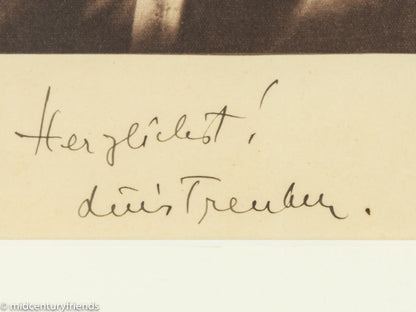 Herzlichst!
Luis Trenker.
© midcenturyfriends